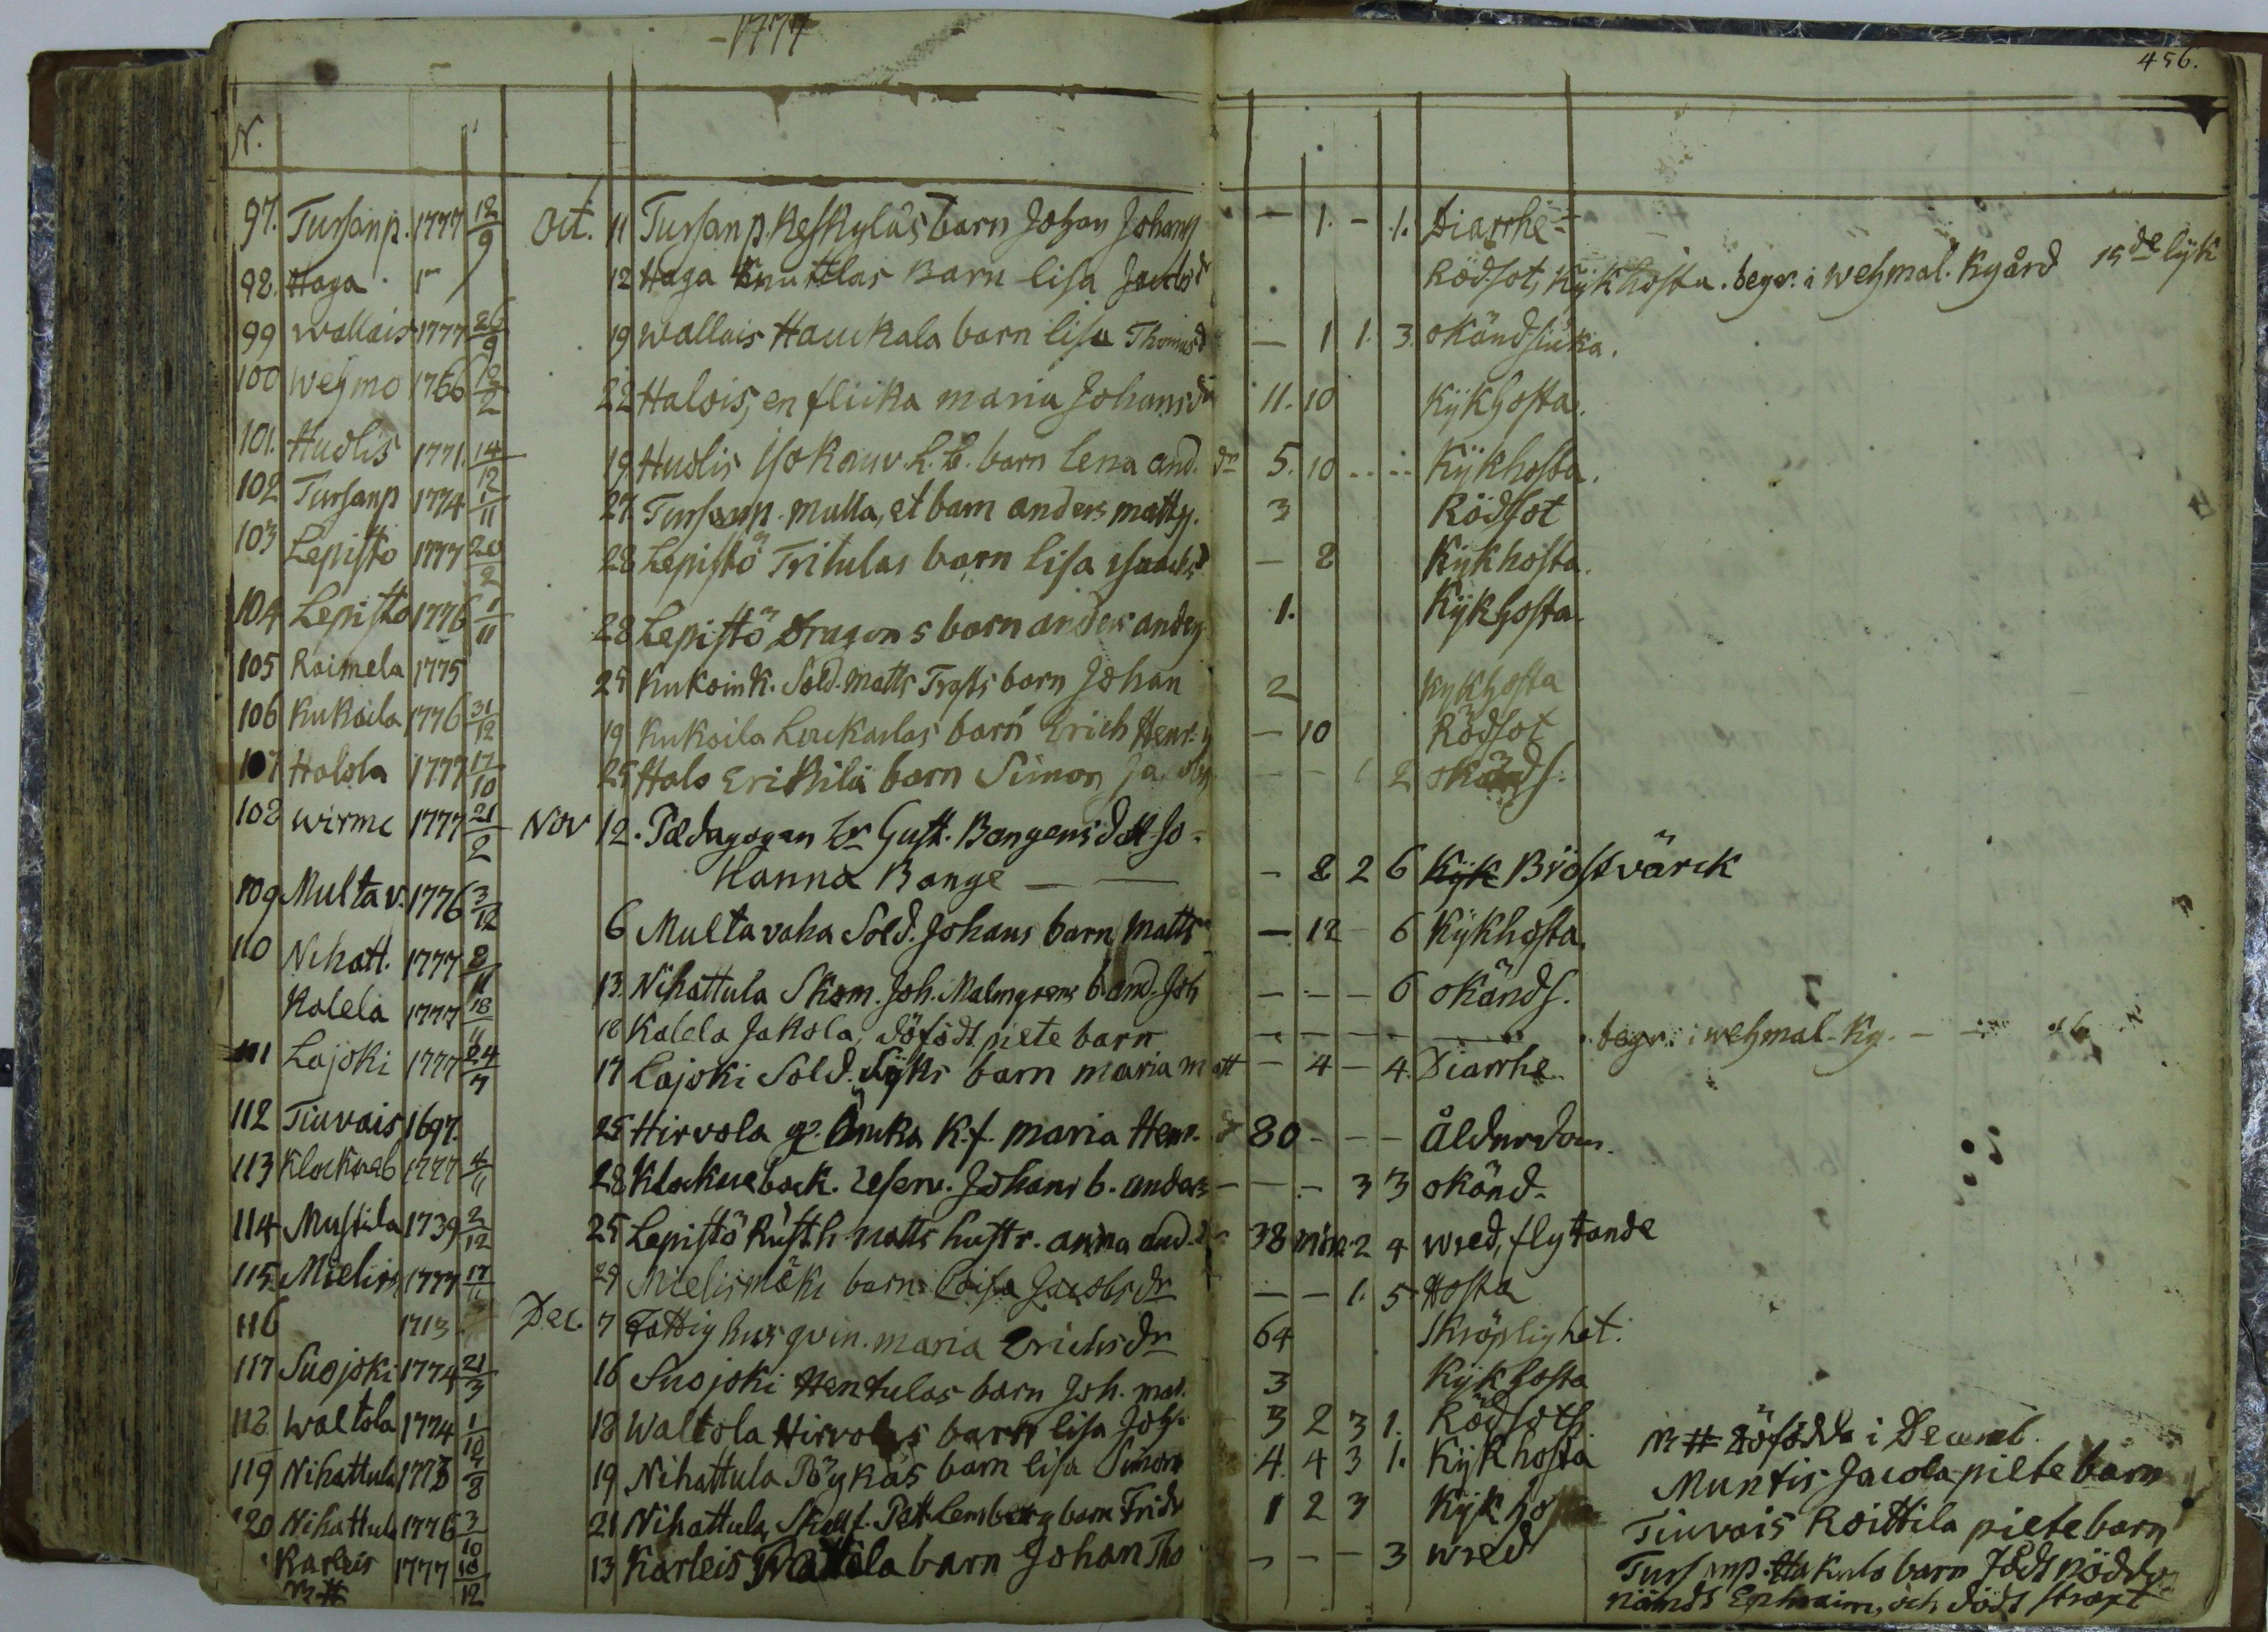 1777
456.
N.
97. Tursanp. 1777 12/9 Oct. 11 Tursanp. Keskyläs barn Johan Johanss - 1. - 1. Diarrhe
98. Haga 12 Haga Knuttilas Barn lisa Jacobsd Rödsot, Kÿkhosta. begr. i wehmal. Kgård 15de lÿk
99 Wallais 1777 26/9 19 Wallais Hauckala barn lisa Thomasd - 1 1. 3. okänd siuka.
100 Wehmo 1766 12/2 22 Halois, en flicka maria Johansdr 11. 10 Kÿkhosta.
101. Hudlis 1771. 14/12 19 Hudlis Isokauv. h. b. barn lena and. dr 5. 10 - - Kÿkhosta.
102 Tursanp 1774 1/11 27 Tursanp. mulla, et barn anders mattss. 3 Rödsot
103 Lepistö 1777 20/2 28 Lepistö Tritulas barn lisa isaacksd - 8 Kÿkhosta.
104 Lepistö 1776 1/11 28 Lepistö Dragons barn anders anderss. 1. Kÿkhosta.
105 Raimela 1775 25 Kukoink. Sold. Matts Trasts barn Johan 2 Kykhosta
106 Kukoila 1776 31/12 19 Kukoila Louckarlas barn Erich Henr. - 10 Rödsot
107 Halola 1777 17/10 25 Halo Erikilä barn Simon Ja - - 1 2 okänds.
108 Wirmo 1777 21/2 Nov 12. Pædagogen Hr Gust. Bangens dott Jo-
Hanna Bange - - 8 2 6 Kÿk Bröstvärck
109 Multav. 1776 3/12 6 Multavaha Sold. Johans barn Matts - 12 - 6 Kÿkhosta.
110 Nihatt. 1777 8/11 13. Nihattula Skom. Joh. Malmgrens b and. Joh - - - 6 okänds.
Kalela 1777 18/11 18 Kalela Jakola, döfödt piete barn - - - - begr. i wehmal. Kg.
111 Lajoki 1777 24/7 17 Lajoki Sold. Lÿks barn maria matt - 4 - 4. Diarrhe.
112 Tiuvais 1697. 25 Hirvola g. Enka K.f. maria Henr. dr 80 - - - ålderdom.
113 Klockareb 1777 4/11 28 Klockareback. reserv. Johans b. anders - - - 3 3 okänd.
114 Mustila 1739 2/12 25 Lepistö Rusth. Matts hustr. anna and. dr 38 mån 2 4 wred, flytande
115. Mielism 1777 17/11 29 Mielismäki barn Loisa Jacobs dr - - 1. 5 Hosta
116 1713 Dec. 7 Fattighus qvin. maria Erichs dr 64 Skröplighet.
117 Suojoki 1774 21/3 16 Suojoki Hentulas barn Joh. mat. 3 Kÿkhosta
118. Waltola 1774 1/10 18 Waltola Hirvolas barn lisa Joh. 3 2 3 1. Rödsoth
119 Nihattula 1773 4/8 19 Nihattula Pöykäs barn lisa Simons 4. 4 3 1. Kÿkhosta
120 Nihattula 1776 3/10 21 Nihattula, Skallf. Pett. Lemberg barn Fridr 1 2 3 Kÿkhosta
Karleis 1777 10/12 13 Karleis Mattila barn Johan Tho - - - 3 wred
N #
N # Döfödda i Decemb.
Muntis Jacola piltebarn
Tiuvais Koittila pieltebarn
Tursanp. Hakula barn Födt nöddo
nämdt Ephraim, och dödt straxt